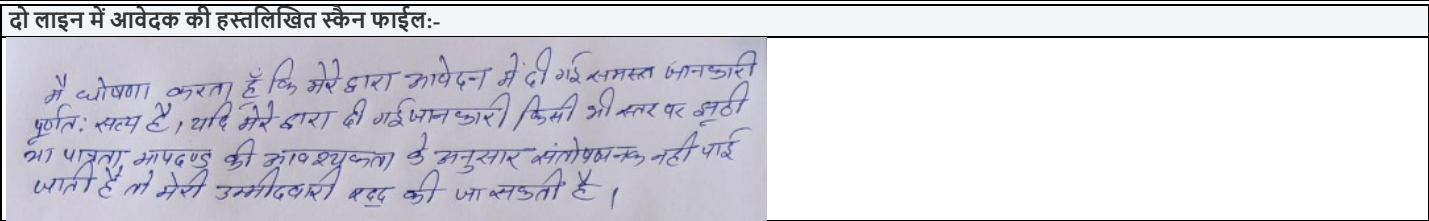 दो लाइन में आवेदक की हस्तलिखित स्कैन फाईल:-
मै घोषणा करता हूँ कि मेरे द्वारा आवेदन में दी गई समस्त जानकारी
पूर्णत: सत्य है, यदि मेरे द्वारा दी गई जानकारी किसी भी स्तर पर झूठी
या पात्रता मापदण्ड की आवश्यकता के अनुसार संतोषजनक नही पाई
जाती है तो मेरी उम्मीदवारी रद्द की जा सकती है।